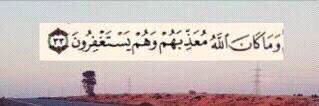 وَمَا كَانَ ٱللَّهُ مُعَذِّبَهُمْ وَهُمْ يَسْتَغْفِرُونَ ٣٣